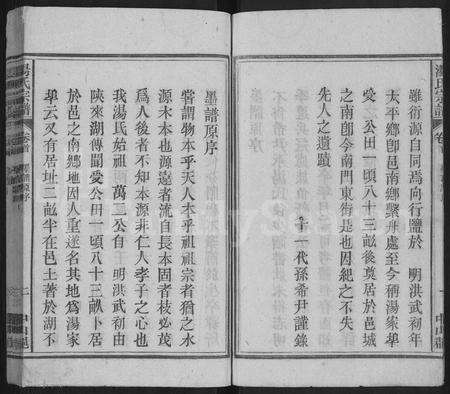 湯氏宗譜
卷首
一
中山郡
雖衍源自同焉向行鹽於 明洪武初年
太平鄉卽邑南鄉聚井處至今稱湯家垾
愛 公田一頃八十三畝後奠居於邑城
之南卽今南門東街是也因紀之不失
先人之遺蹟
十一代孫希尹謹錄
舊譜原序
嘗謂物本乎天人本乎祖祖宗者猶之水
源木本也源遠者流自長本固者枝必茂
爲人後者不知本源非仁人孝子之心也
我湯氏始祖 萬三公自于 明洪武初由
陝來湖傳聞愛公田一頃八十三畝卜居
於邑之南鄉地因人重遂名其地爲湯家
垾云又有居址二畝半在邑土著於湖不
湯氏宗譜
卷首
二
中山郡